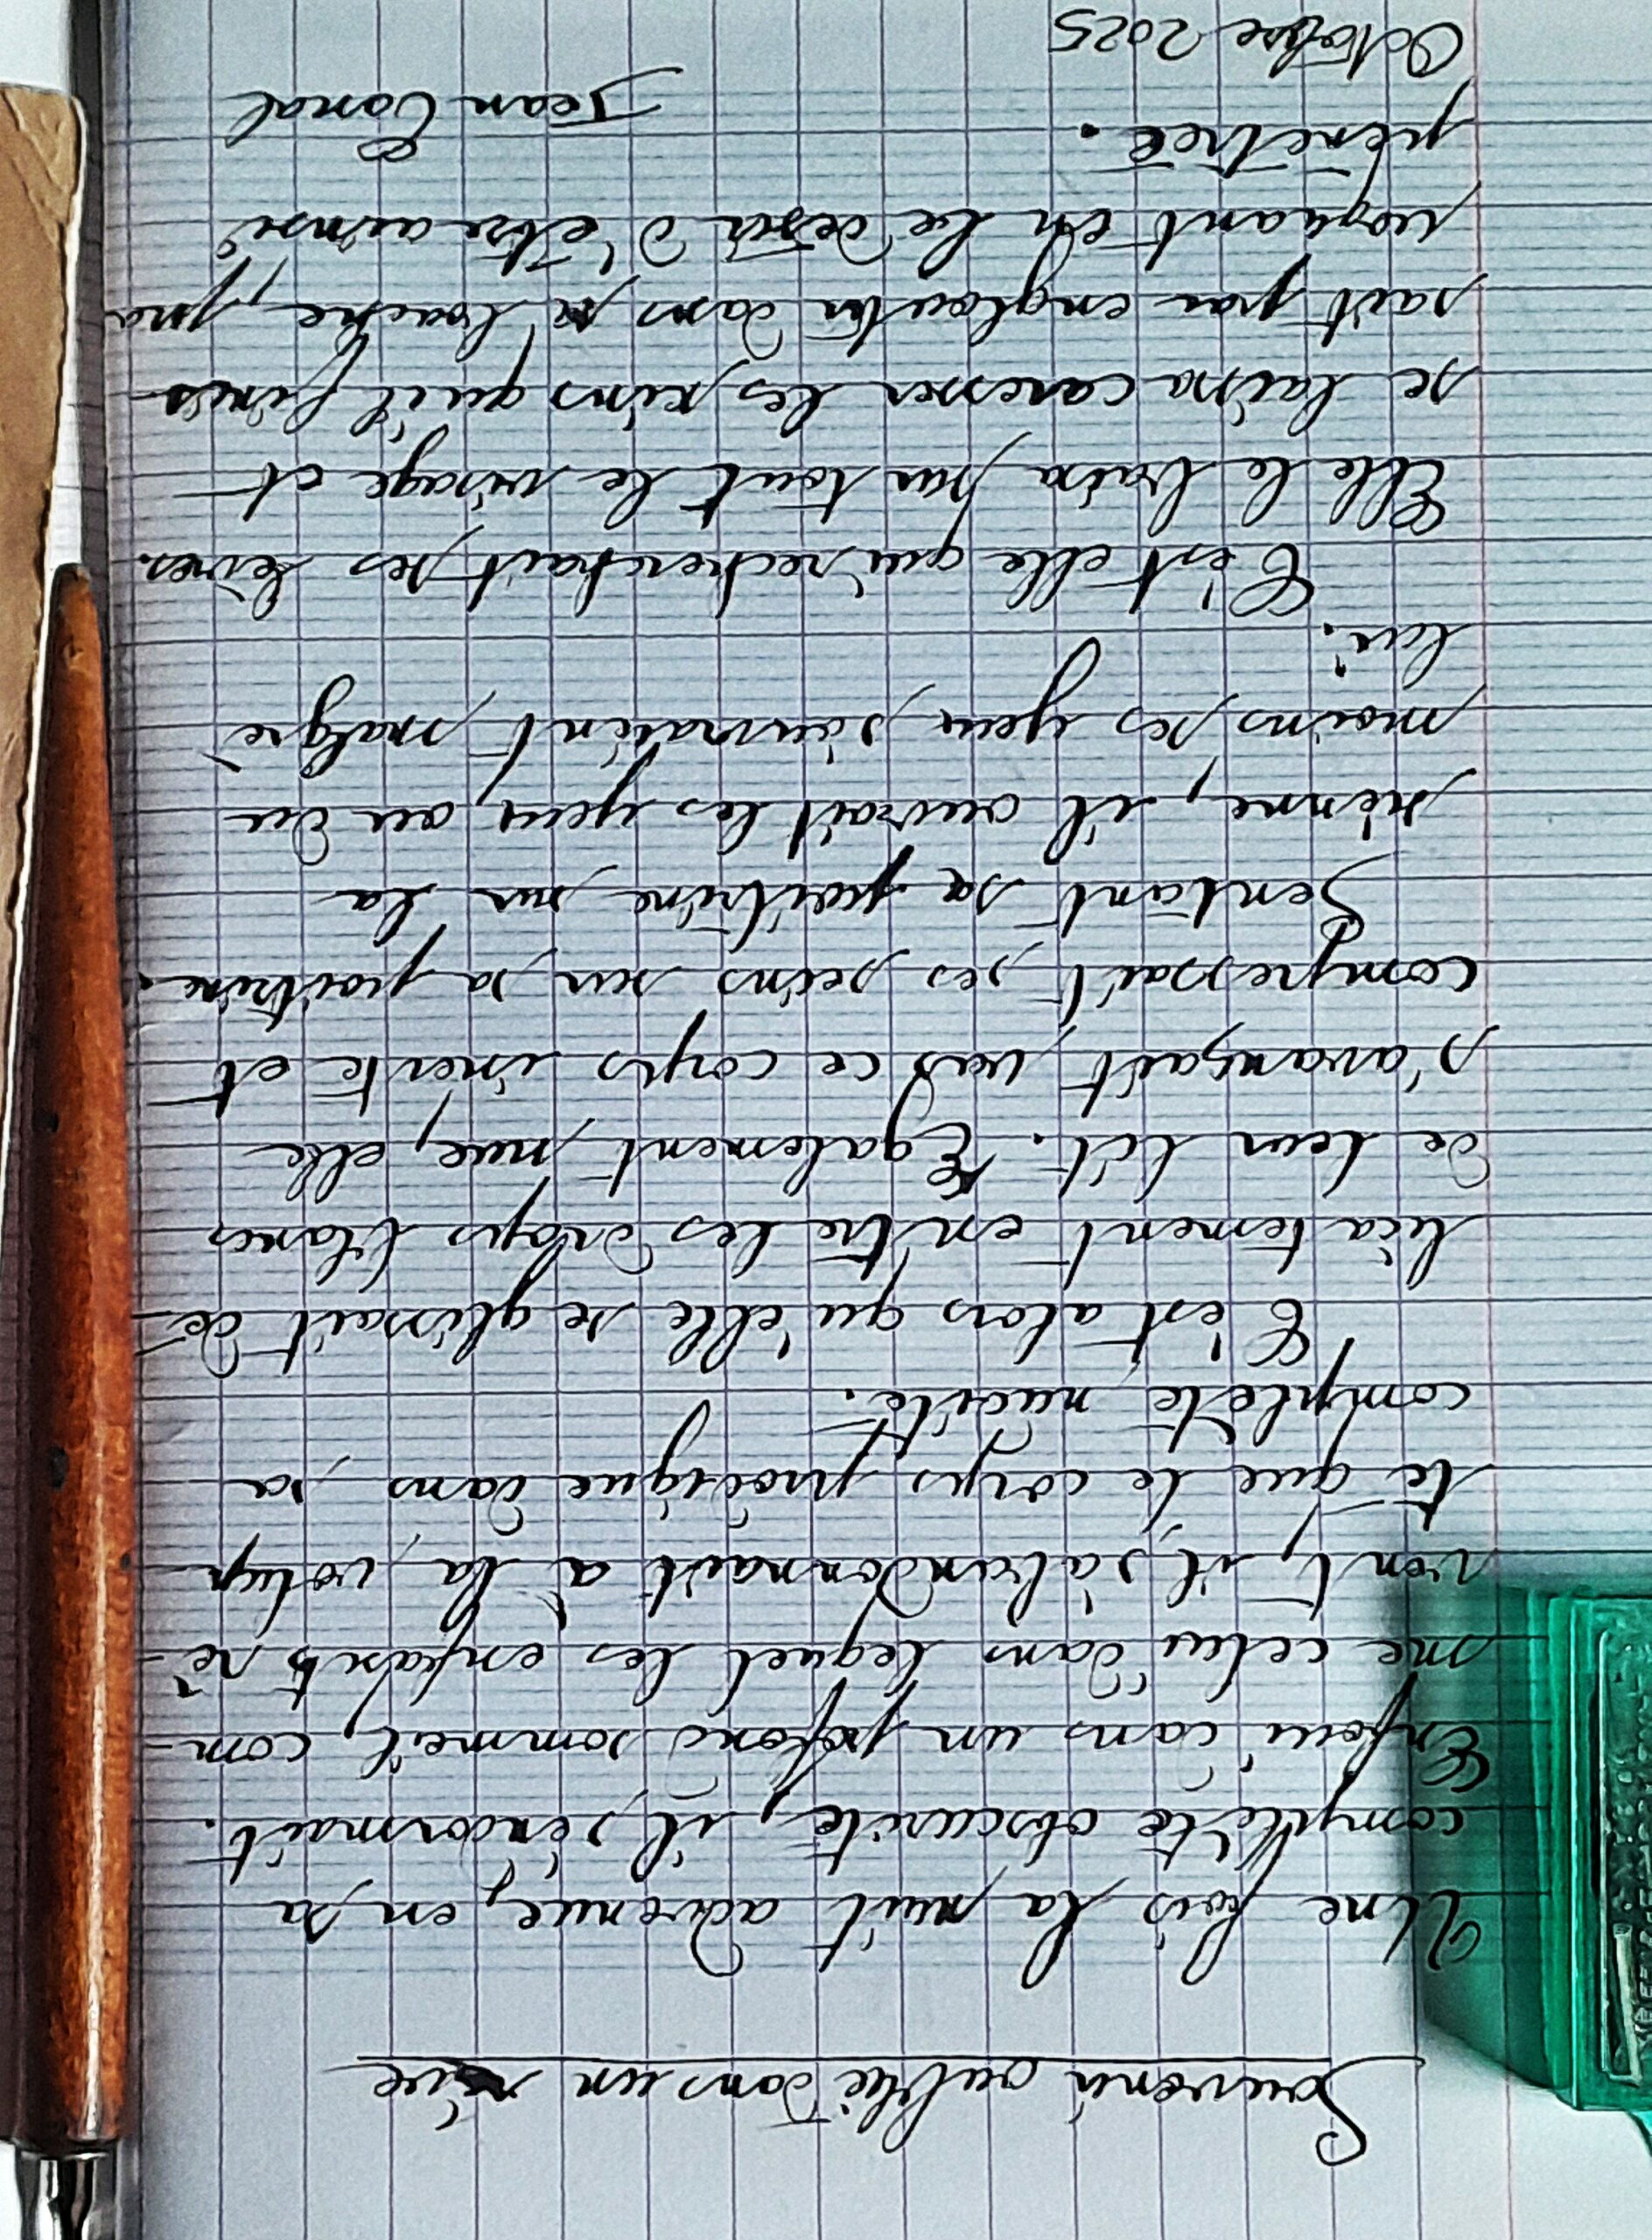 Souvenir oublié dans un rêve
Une fois la nuit advenue, en sa
complète obscurité, il s'endormait.
Enfoui dans un profond sommeil, com-
me celui dans lequel les enfants rê-
vent, il s'abandonnait à la volup
té que le corps prodigue dans sa
complète nudité.
C'est alors qu'elle se glissait dé-
licatement entre les draps blancs
de leur lit. Egalement nue, elle
s'avançait vers ce corps inerte et
compressait ses seins sur sa poitrine.
Sentant sa poitrine sur la
sienne, il ouvrait les yeux, au du
moins ses yeux s'ouvraient malgré
lui.
C'est elle qui recherchait ses lèvres.
Elle le baisa sur tout le visage et
se laissa caresser les seins qu'il finis-
sait par engloutir dans sa bouche, pro
voquant en le désir d'être ainsi
pénétrée.
Jean Canal
Octobre 2025